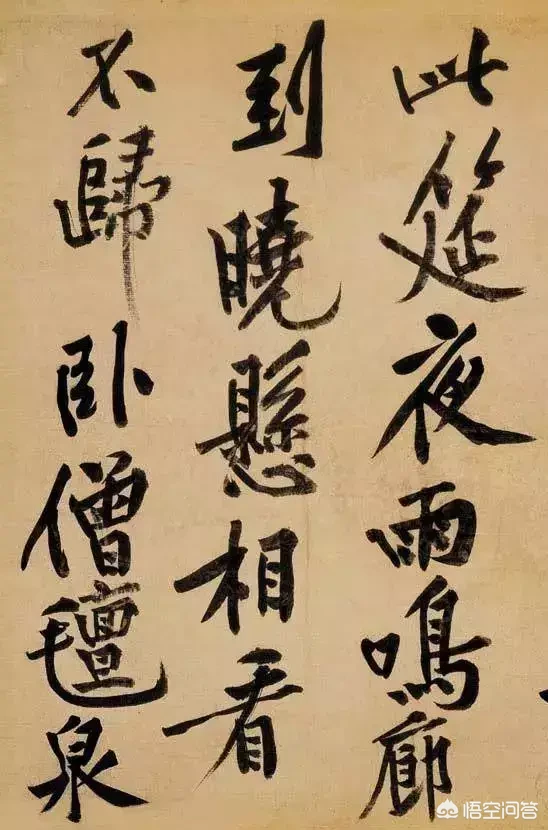 此筵夜雨鳴廊
到曉懸相看
不歸卧僧氊泉
悟空问答